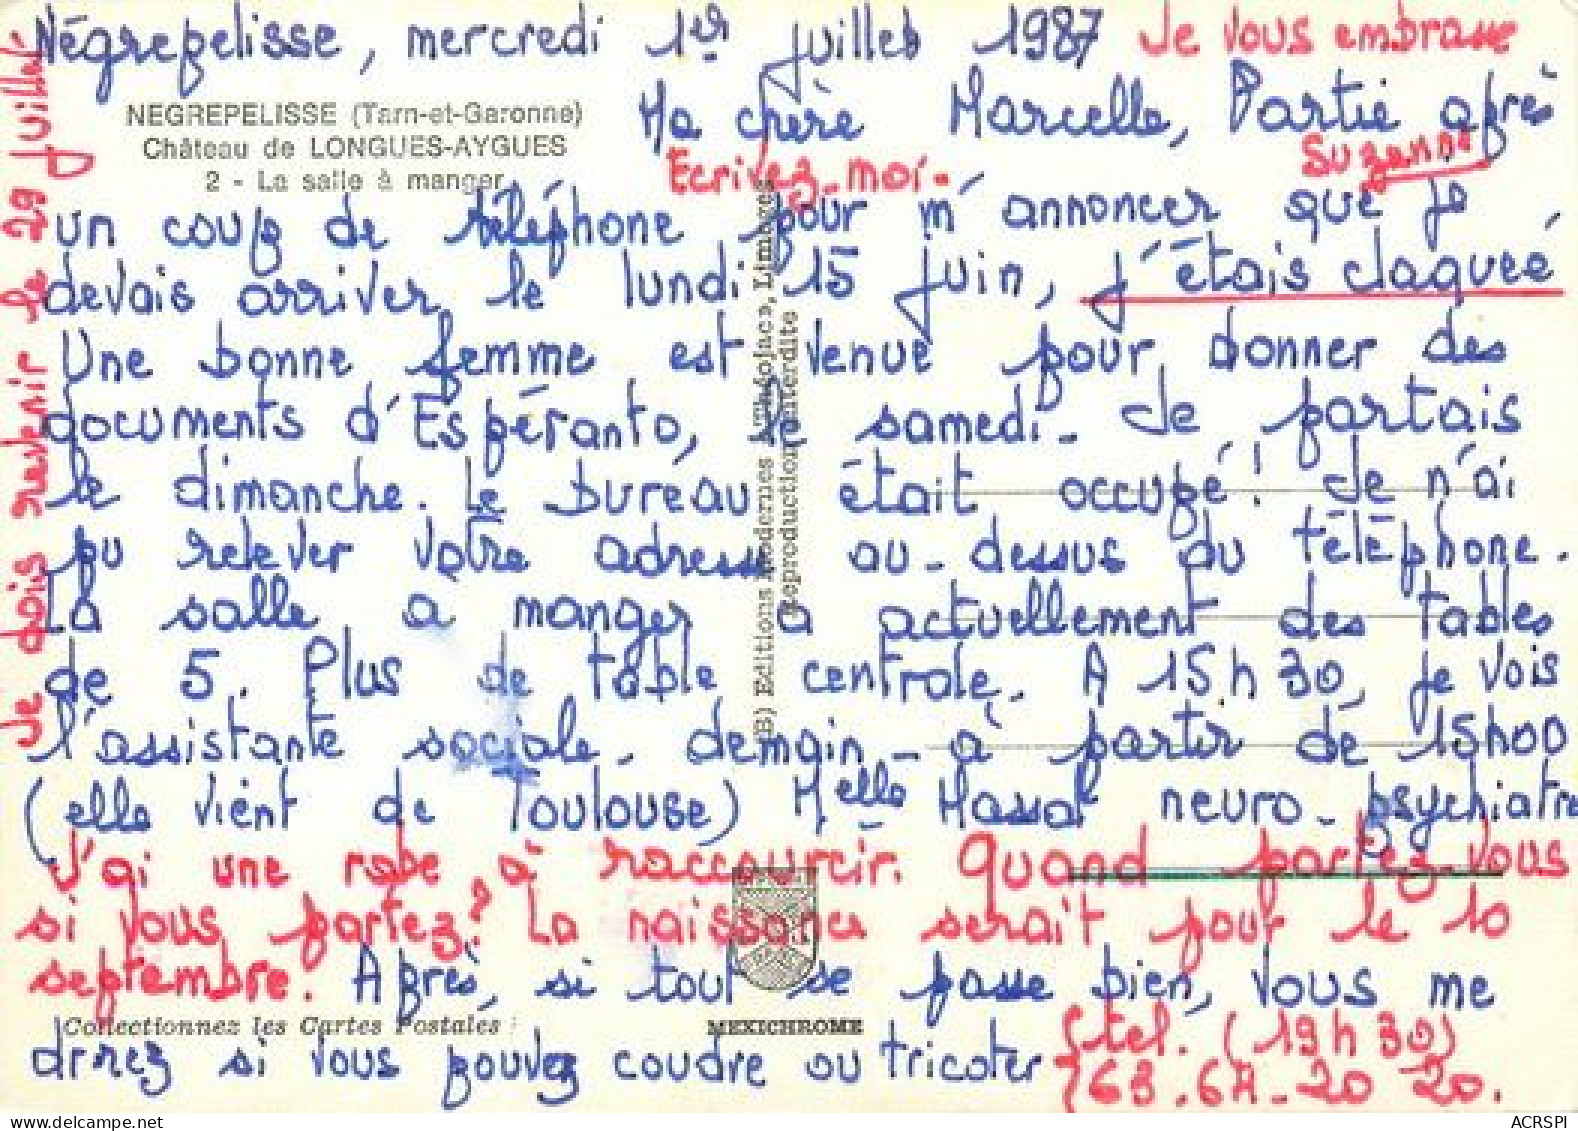 Négrepelisse, mercredi 1er juillet 1987 Je vous embrasse
NEGREPELISSE (Tarn-et-Garonne)
Château de LONGUES-AYGUES
2 - La salle à manger
Ma chère Marcelle, Partie après
Ecrivez-moi. Suzanne
un coup de téléphone pour m'annoncer que je
devais arriver le lundi 15 juin, j'étais claquée
Une bonne femme est venue pour donner des
documents d'Espéranto, le samedi. Je partais
le dimanche. Le bureau était occupé! Je n'ai
pu relever votre adresse au-dessus du téléphone.
La salle à manger a actuellement des tables
de 5. Plus de table centrale. A 15h30, je vois
l'assistante sociale. demain - à partir de 15h00
(elle vient de Toulouse) Melle Massat neuro-psychiatre
J'ai une robe à raccourcir. Quand partez-vous
si vous partez? La naissance serait pour le 10
septembre. Après, si tout se passe bien, vous me
direz si vous pouvez coudre ou tricoter
tel. (19h30)
63.64.20 20.
Je dois revenir le 29 juillet.
(B) Editions Modernes Limoges
Reproduction interdite
Collectionnez les Cartes Postales
MEXICHROME
ACRSPI